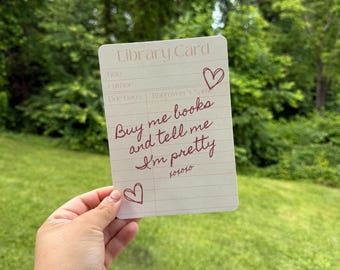 Library Card
Title
Author
Due Date Borrower's Name
Buy me books
and tell me
I'm pretty
xoxoxo